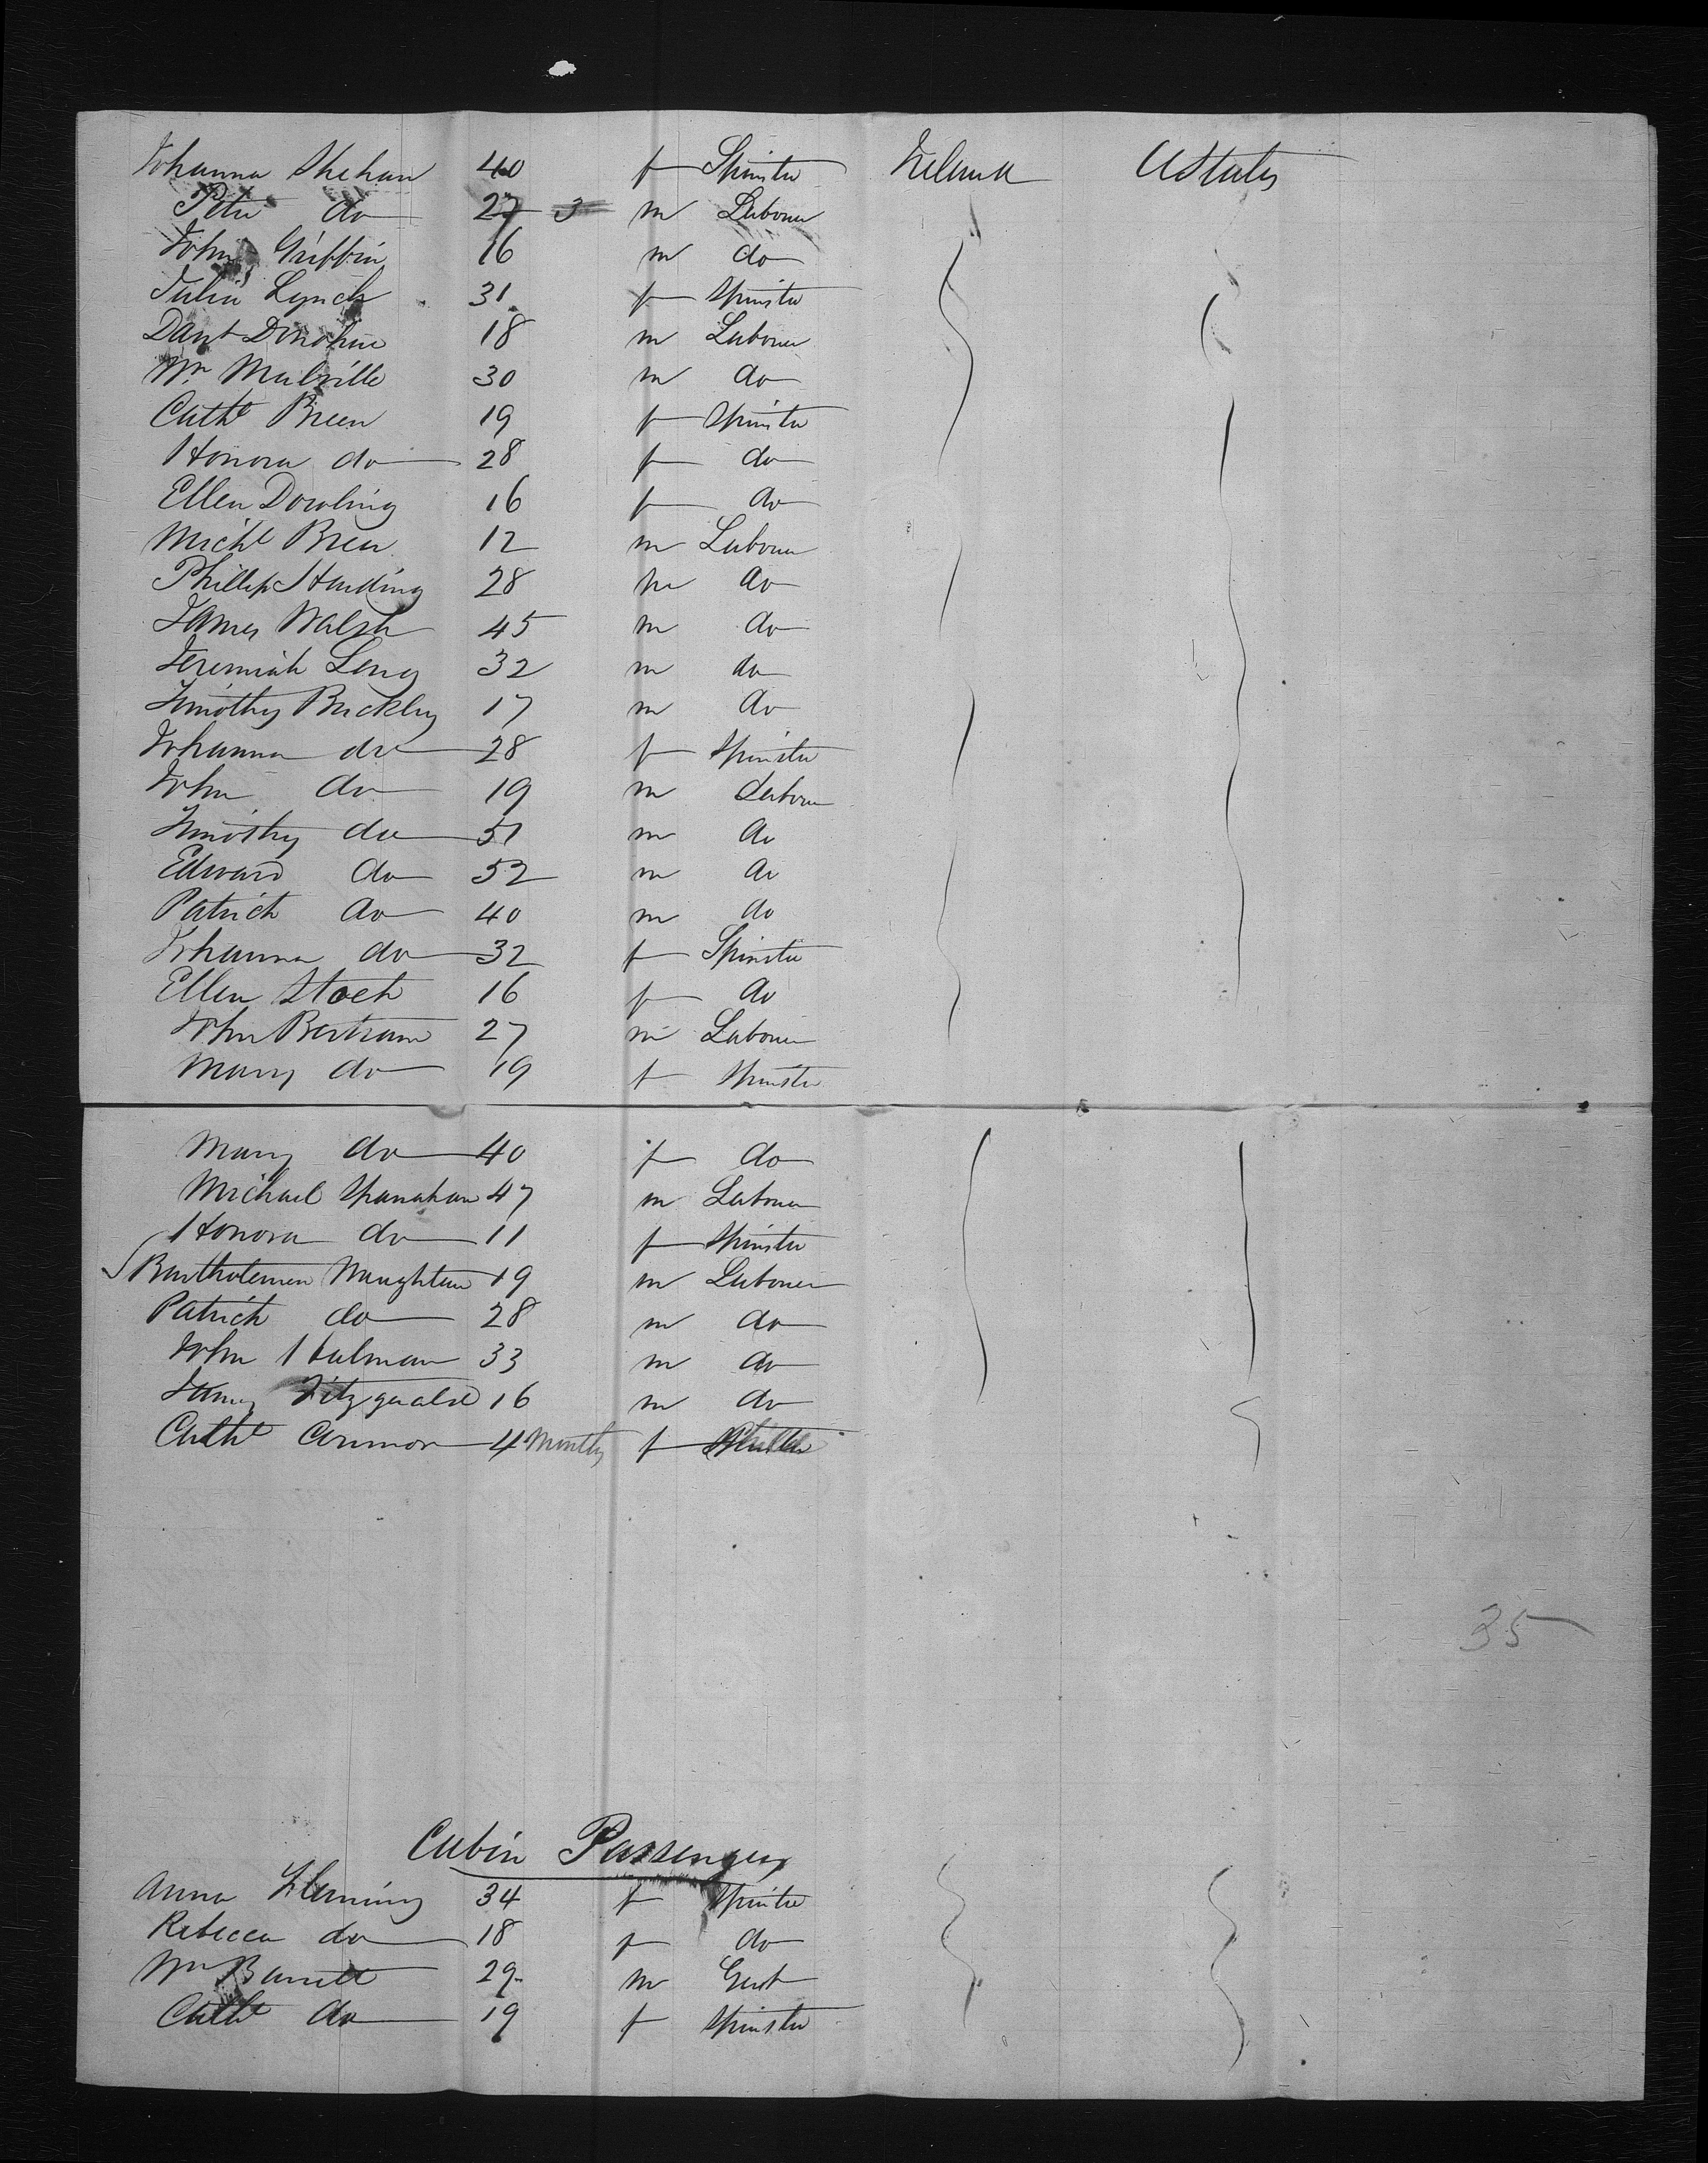 Johanna Shehan 40 f Spinster Ireland UStates
Peter do 27 3 m Labourer
John Griffin 16 m do
Julia Lynch 31 f Spinster
Danl Donohue 18 m Labourer
Wm Mulville 30 m do
Cathe Breen 19 f Spinster
Honora do 28 f do
Ellen Dowling 16 f do
Michl Breen 12 m Labourer
Phillip Harding 28 m do
James Walsh 45 m do
Jeremiah Leng 32 m do
Timothy Buckley 17 m do
Johanna do 28 f Spinster
John do 19 m Labourer
Timothy do 51 m do
Edward do 52 m do
Patrick do 40 m do
Johanna do 32 f Spinster
Ellen Stack 16 f do
John Bertram 27 m Labourer
Mary do 19 f Spinster
Mary do 40 f do
Michael Shanahan 47 m Labourer
Honora do 11 f Spinster
Bartholemew Naughten 19 m Labourer
Patrick do 28 m do
John Halman 33 m do
James Fitzgerald 16 m do
Cathe Connor 4 Months f
35
Cabin Passengers
Anna Fleming 34 f Spinster
Rebecca do 18 f do
Wm Barrett 29 m Gent
Cathe do 19 f Spinster